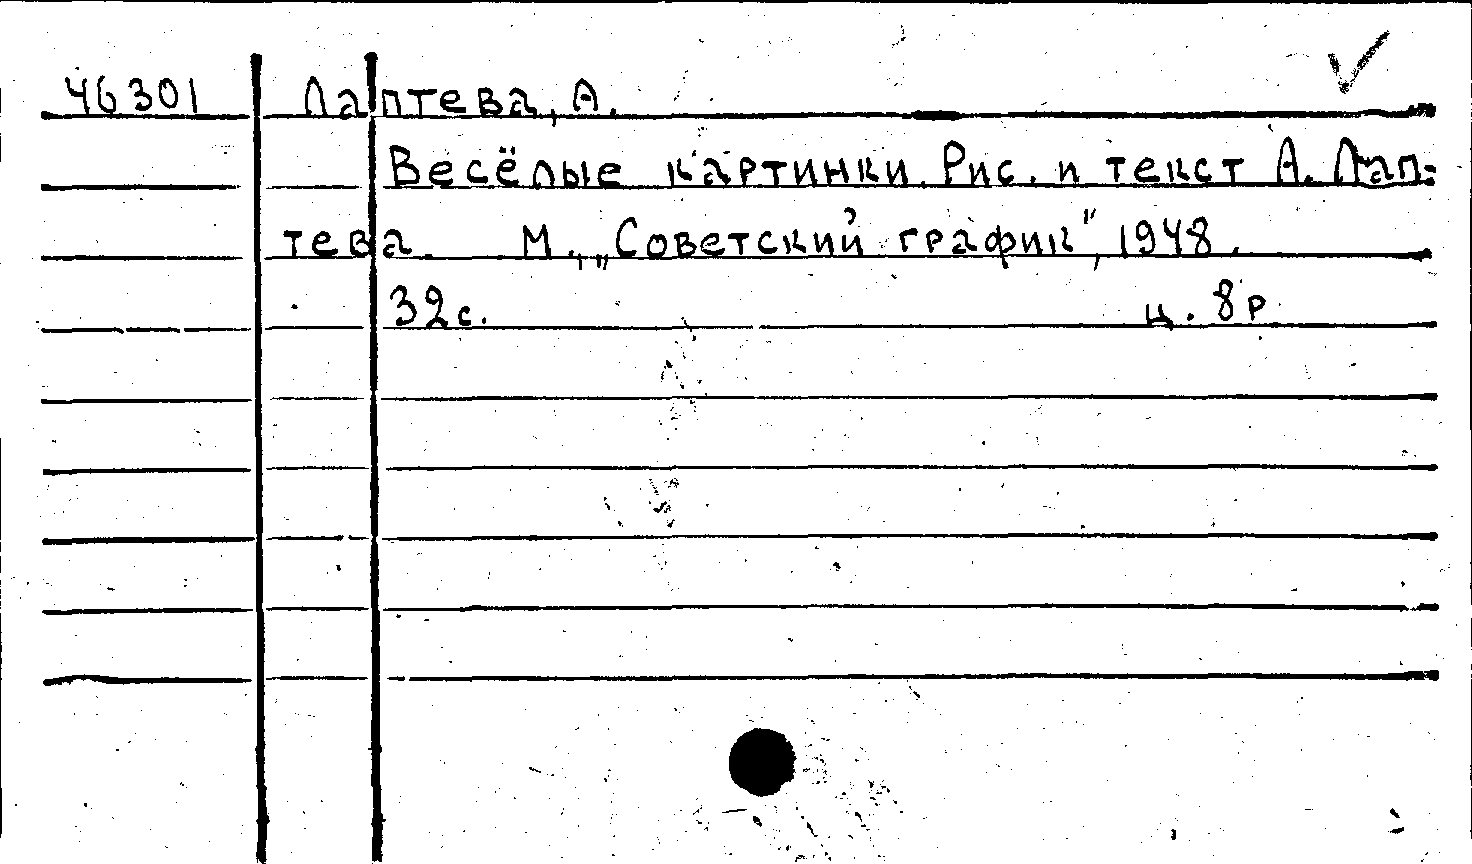 46301 Лаптева, А.
Весёлые картинки. Рис. и текст А. Лап-
тева. М., „Советский график", 1948.
32с. ц. 8р